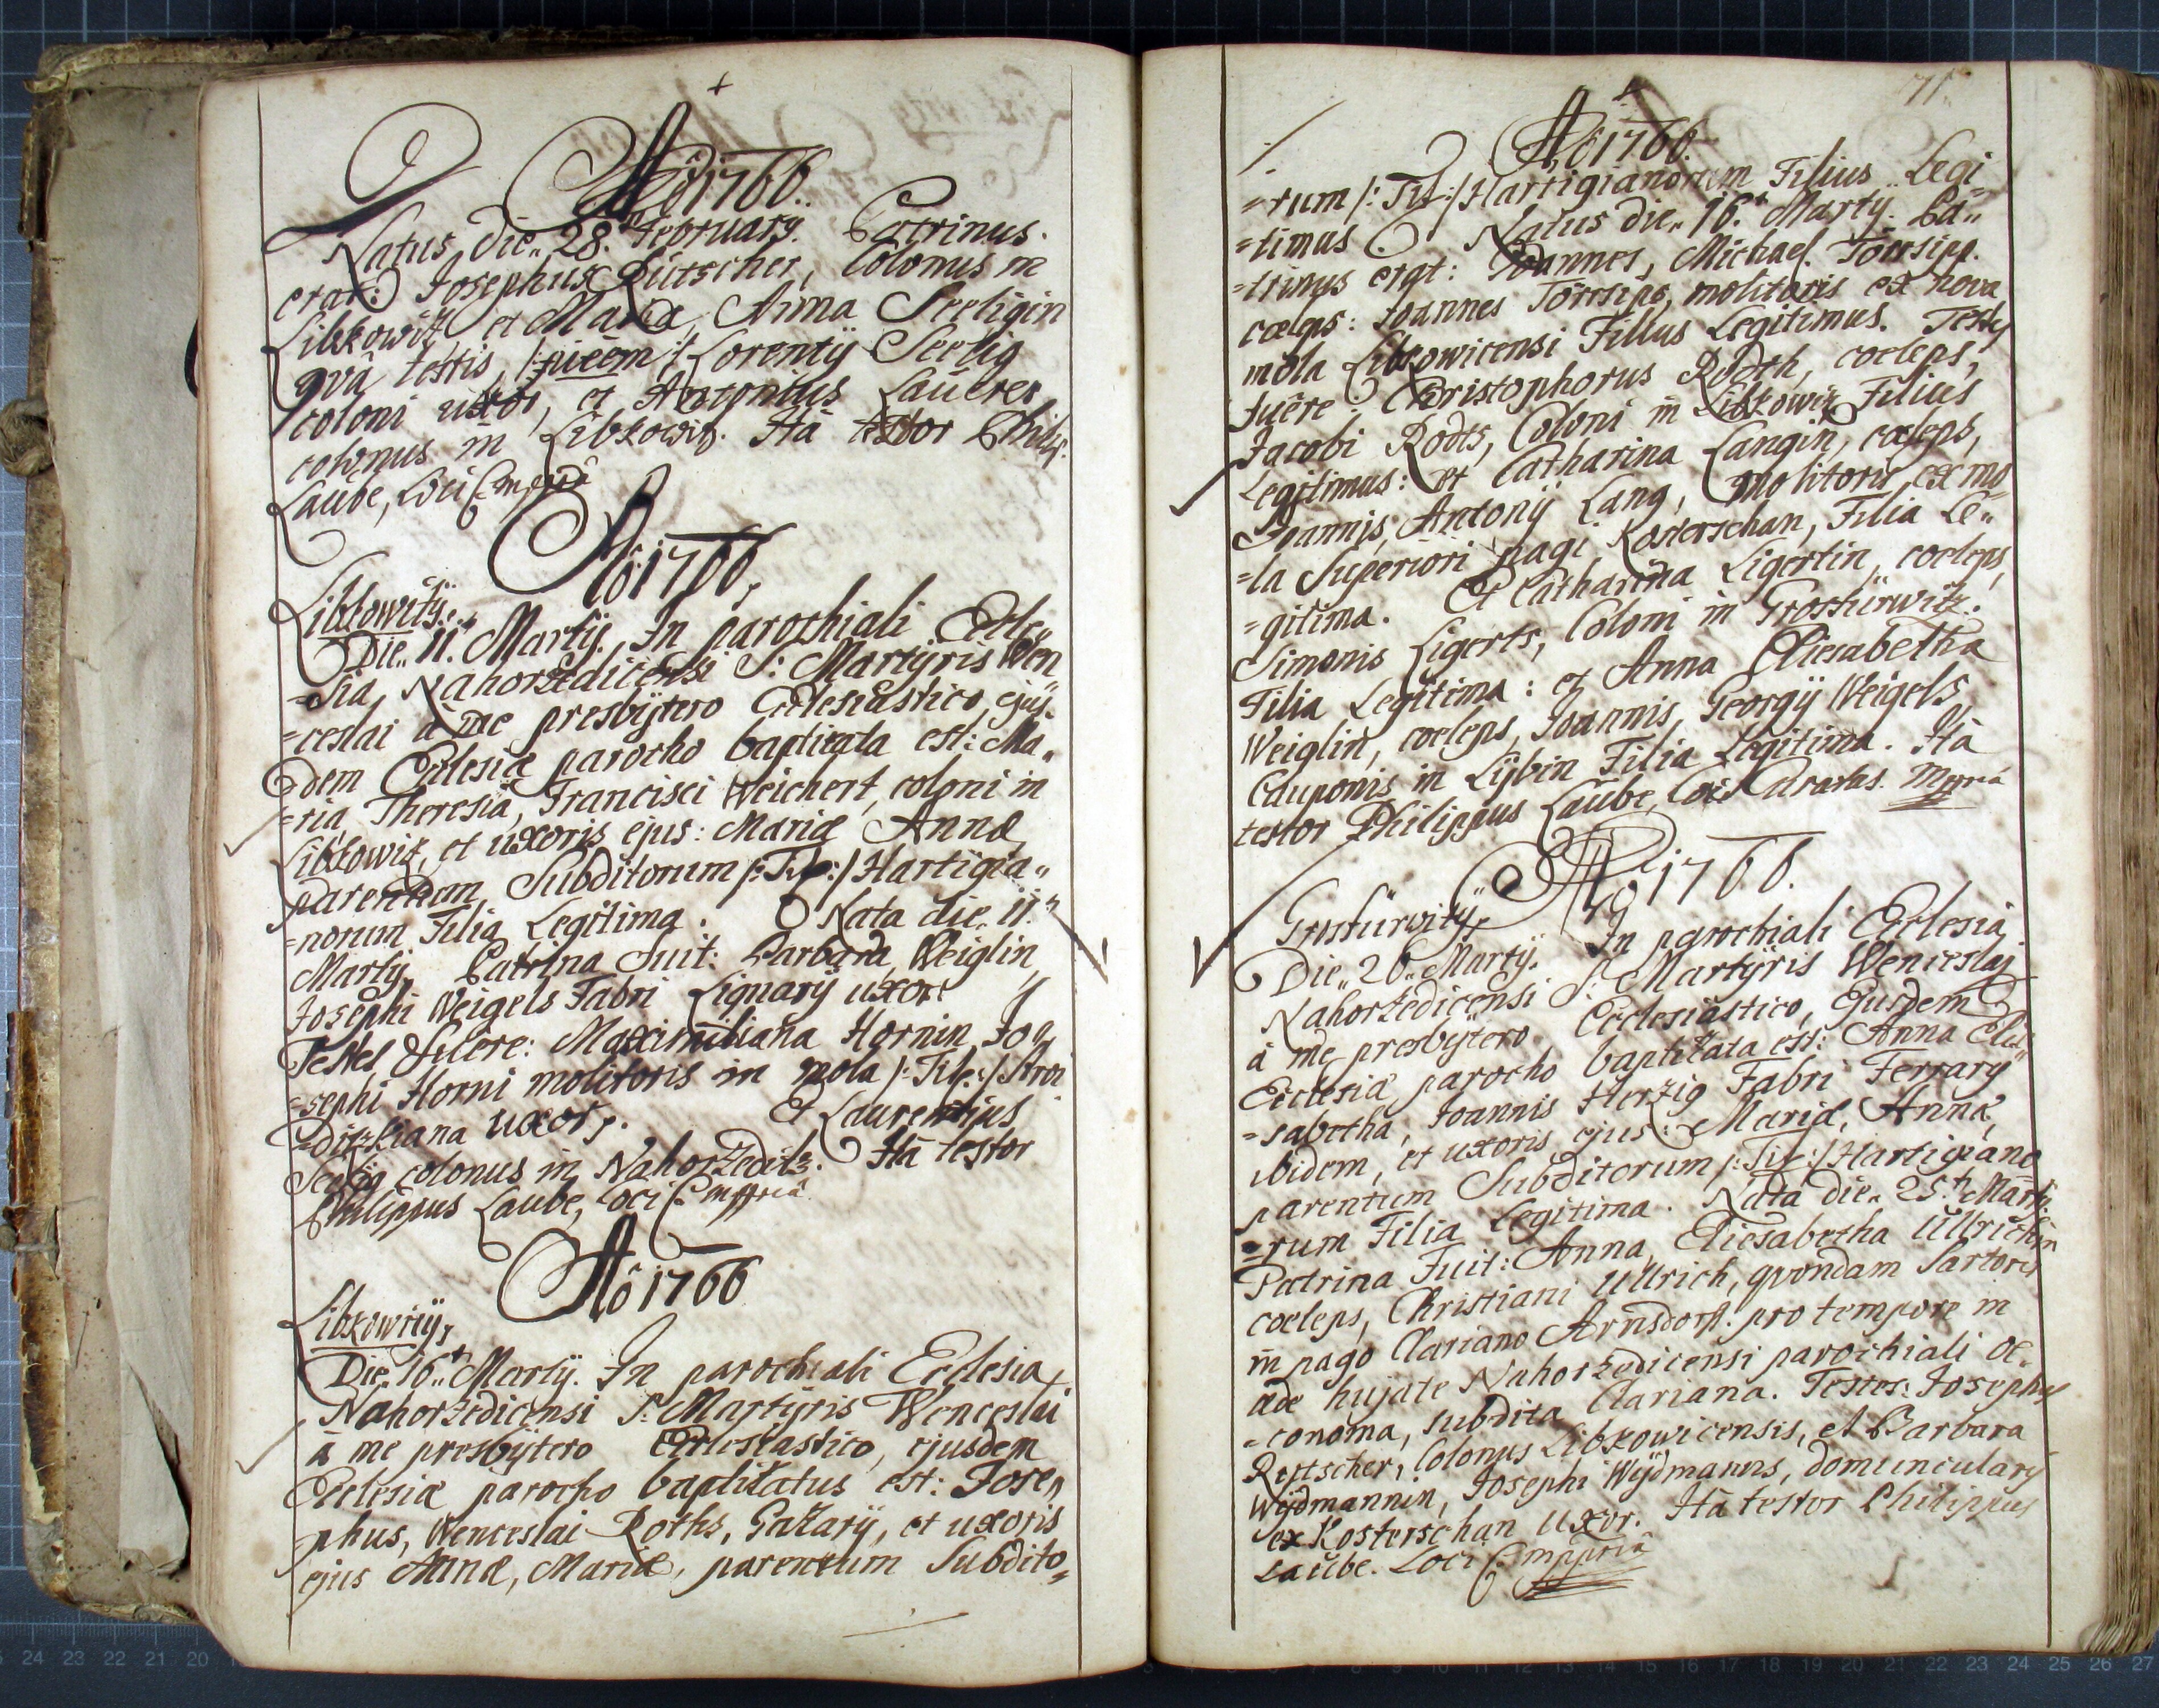 Aõ 1766.
Natus die„ 28. February. Patrinus
erat: Josephus Rütscher, Colonus in
Libkowitz, et Maria, Anna Seeligin
qvà testis, /: :/ Lorentÿ Seelig
coloni uxor, et Antonius Lauerer
colonus in Libkowitz. Ità testor Philip:
Laube, Loci C mppriâ
Aõ 1766.
Libkowitÿ.
Die„ 11. Martÿ. In parochiali Eccle„
=sia, Nahoržedicensi S: Martÿris Wen„
=ceslai à me presbÿtero Ecclesiastico, ejus„
dem Eclesiæ parocho baptizata est: Ma„
=ria, Theresia, Francisci Weichert, coloni in
Libkowitz, et uxoris ejus: Mariæ Annæ
parentum, Subditorum /: Tit: :/ Hartigia„
=norum Filia Legitima. Nata die„ 11.
Martÿ. Patrina Fuit: Barbara, Weiglin
Josephi Weigels Fabri Lignarÿ uxor
Testes Fuere: Maximiliana Hornin, Jo„
=sephi Horni molitoris in mola /: Tit: :/ Aroi
=dizkiana uxor. Et Laurentius
Seelig colonus in Nahoržeditz. Ità testor
Philippus Laube, Loci C mppriâ
Aõ 1766
Libkowitÿ,
Die„ 16. Martÿ. In parochiali Ecclesia,
Nahoržedicensi S: Martÿris Wenceslai
à me presbÿtero Ecclesiastico, ejusdem
Ecclesiæ parocho baptizatus est: Jose„
phus, Wenceslai Roths, Gažarÿ, et uxoris
ejus Annæ, Mariæ, parentum Subdito„
71.
Aõ 1766.
=rum /: Tit: :/ Hartigianorum Filius Legi
=timus. Natus die„ 16. Martÿ. Pa„
=trinus erat: Joannes, Michael Törrsipp.
cœleps: Joannes Törrsipp, molitoris ex nova
mola Libkowicensi Filius Legitimus. Testes
fuêre Christophorus Rodth, cœleps,
Jacobi Rodts, Coloni in Libkowitz Filius
Legitimus: et Catharina Langin, cœleps,
Joannis, Antonÿ Lang, Molitoris ex mo
=la Superiori pagi Kosterschan, Filia Le„
=gitima. Et Catharina Ligertin, cœleps,
Simonis Ligerts, Coloni in Grosturwitz.
Filia Legitima: et Anna Eliesabetha
Weiglin, cœleps, Joannis, Georgÿ Weigels
Cauponis in Lÿbin Filia Legitima. Ità
testor Philippus Laube, Loci Parochus. Mppriâ
Aõ 1766.
Grosturwitÿ,
Die„ 26. Martÿ. In parochiali Ecclesia
Nahoržedicensi S: Martÿris Wenceslaj
à me presbÿtero Ecclesiastico, Ejusdem
Ecclesiæ parocho baptizata est: Anna Elie„
=sabetha, Joannis Herzig Fabri Ferrarÿ
ibidem, et uxoris ejus: Mariæ, Annæ,
parentum Subditorum /: Tit: :/ Hartigiano
=rum Filia Legitima. Nata die„ 25. Martÿ.
Patrina Fuit: Anna, Eliesabetha Ullrichin
cœleps, Christiani Ullrich, qvondam Sartoris
in pago Clariano Arnsdorf. pro tempore in
æde hujate Nahoržedicensi parochiali oe„
=conoma, subdita Clariana. Testes: Josephus
Rütscher, Colonus Libkowicensis, et Barbara
Wÿdmannin, Josephi Wÿdmanns, domuncularÿ
ex Kosterschan uxor. Ità testor Philippus
Laube. Loci C mppriâ